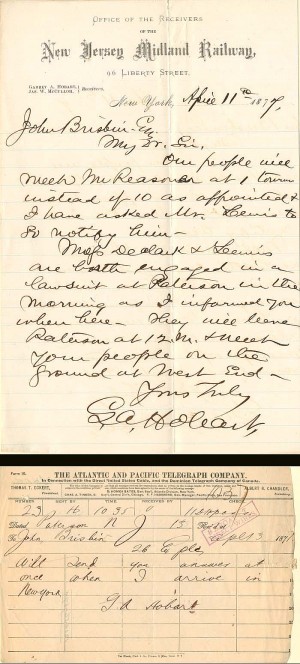 OFFICE OF THE RECEIVERS
OF THE
New Jersey Midland Railway,
98 LIBERTY STREET.
GARRET A. HOBART,
JAS. W. McCULLOH, } RECEIVERS.
New York, April 11th 1877,
John Brisbin Esq
My Dr. Sir.
Our people will
meet Mr Reasoner at 1 tomorrow
instead of 10 as appointed &
I have asked Mr. Lewis to
so notify him—
Messrs DeClark & Lewis
are both engaged in a
lawsuit at Paterson in the
morning as I informed you
when here— They will leave
Paterson at 12 M. & meet
your people on the
ground at West End—
Yours Truly
G A Hobart,
THE ATLANTIC AND PACIFIC TELEGRAPH COMPANY.
In Connection with the Direct United States Cable, and the Dominion Telegraph Company of Canada.
THOMAS T. ECKERT,
ALBERT B. CHANDLER,
NUMBER
23 J 16 10 35
Dated Paterson N J 13
187
To John Brisbin
Will send you answer at
once when I arrive in
New York
G A Hobart